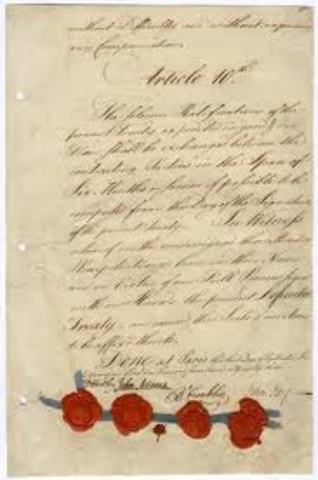 without Difficulty and without requiring
any Compensation.
Article 10th.
The solemn Ratifications of the
present Treaty expedited in good & due
Form shall be exchanged between the
contracting Parties in the Space of
Six Months or sooner if possible to be
computed from the Day of the Signature
of the present Treaty. In Witness
whereof we the undersigned their Ministers
Plenipotentiary have in their Name
and in Virtue of our Full Powers signed
with our Hands the present Definitive
Treaty, and caused the Seals of our Arms
to be affix'd thereto.
Done at Paris, this third Day of September,
D Hartley John Adams B Franklin John Jay